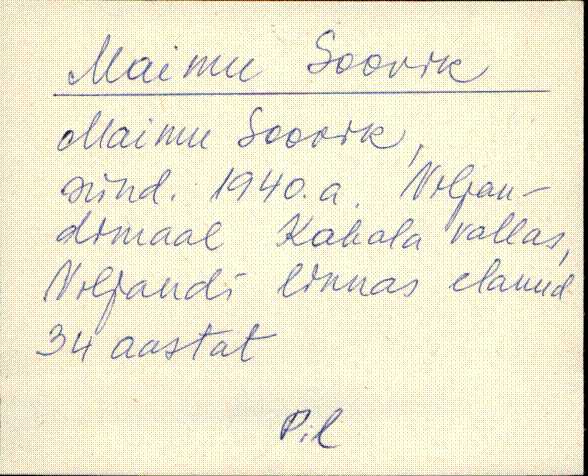 Maimu Soovik
Maimu Soovik,
sünd. 1940.a. Viljan-
dimaal Kabala vallas,
Viljandi linnas elanud
34 aastat
Pil